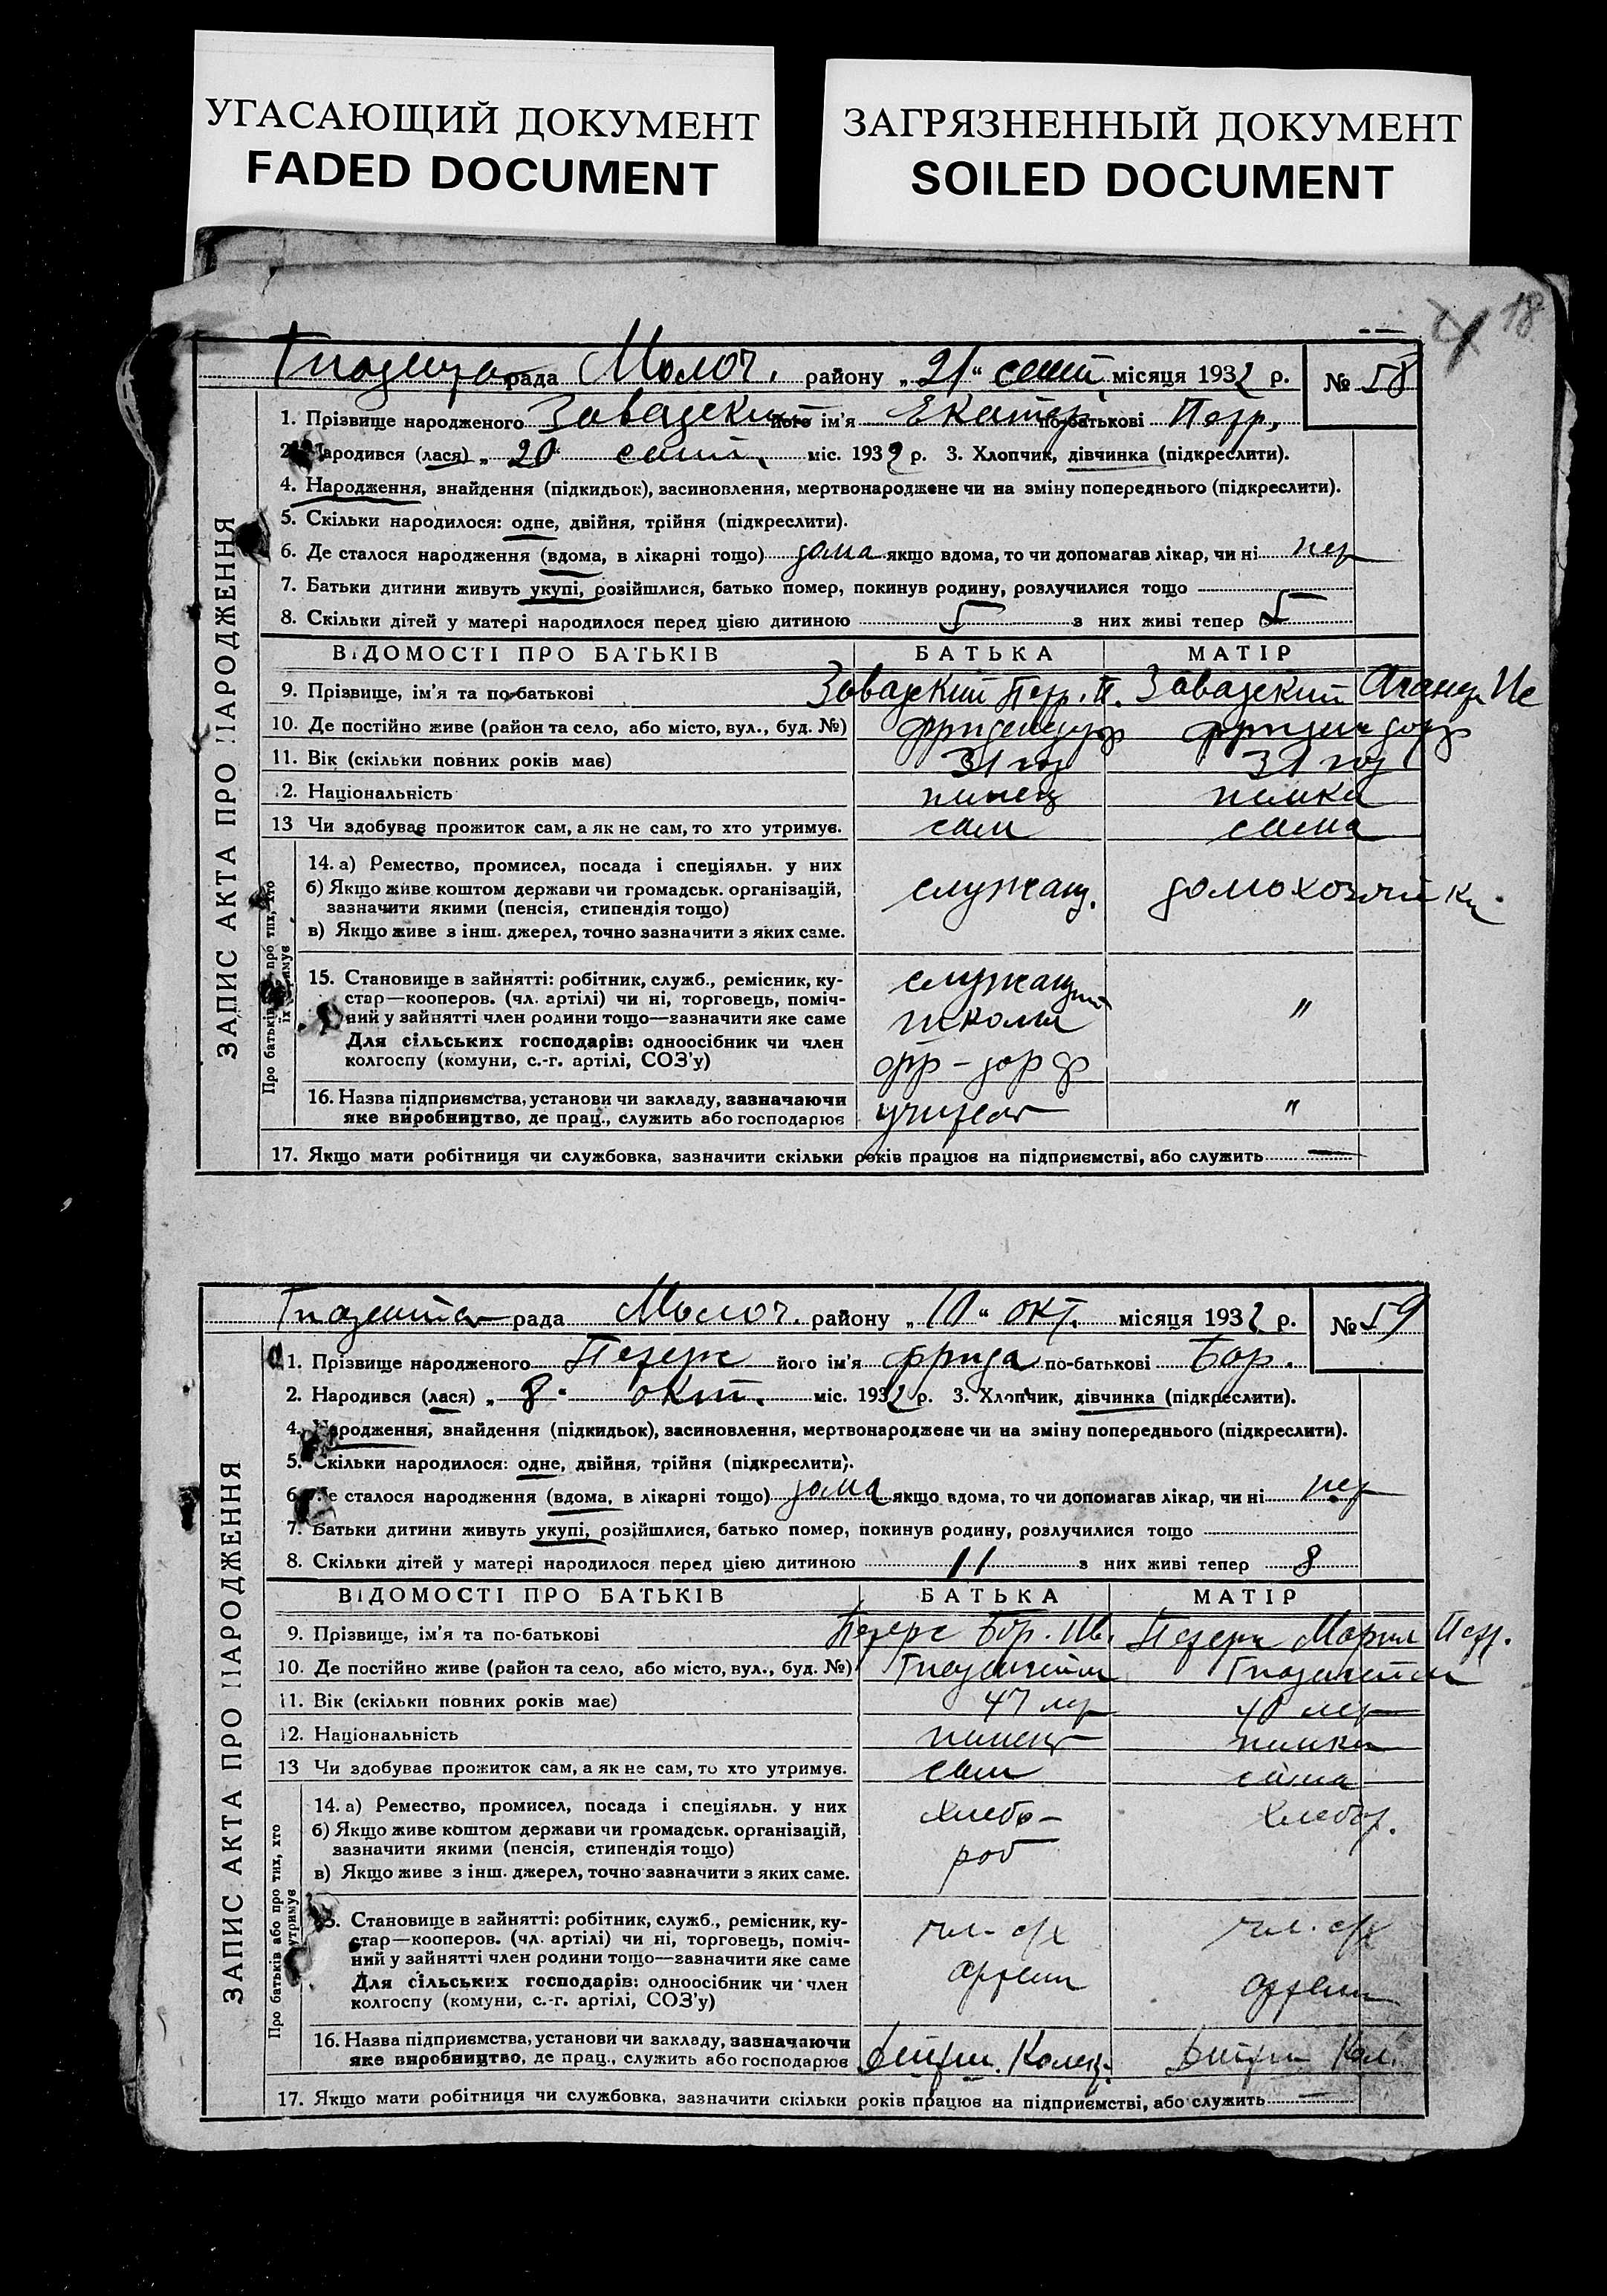 УГАСАЮЩИЙ ДОКУМЕНТ
FADED DOCUMENT
ЗАГРЯЗНЕННЫЙ ДОКУМЕНТ
SOILED DOCUMENT
18
рада Молоч. району „21“ сент. місяця 1932 р. № 58
ЗАПИС АКТА ПРО НАРОДЖЕННЯ
1. Прізвище народженого Завадский його ім'я Екатер. по-батькові Петр.
2. Народився (лася) „20“ сент. міс. 1932 р. 3. Хлопчик, дівчинка (підкреслити).
4. Народження, знайдення (підкидьок), засиновлення, мертвонароджене чи на зміну попереднього (підкреслити).
5. Скільки народилося: одне, двійня, трійня (підкреслити).
6. Де сталося народження (вдома, в лікарні тощо) дома якщо вдома, то чи допомагав лікар, чи ні нет
7. Батьки дитини живуть укупі, розійшлися, батько помер, покинув родину, розлучилися тощо
8. Скільки дітей у матері народилося перед цією дитиною 5 з них живі тепер 5
ВІДОМОСТІ ПРО БАТЬКІВ БАТЬКА МАТІР
9. Прізвище, ім'я та по-батькові Завадский Петр. П. Завадский
10. Де постійно живе (район та село, або місто, вул., буд. №) Фриденсдорф
11. Вік (скільки повних років має) 31 год 31 год
12. Національність немец немка
13 Чи здобуває прожиток сам, а як не сам, то хто утримує. сам сама
Про батьків або про тих, хто їх утримує
14. а) Ремество, промисел, посада і спеціяльн. у них
б) Якщо живе коштом держави чи громадськ. організацій, служащ. домохозяйка
зазначити якими (пенсія, стипендія тощо)
в) Якщо живе з інш. джерел, точно зазначити з яких саме.
15. Становище в зайнятті: робітник, служб., ремісник, ку- служащий
стар—кооперов. (чл. артілі) чи ні, торговець, поміч- "
ний у зайнятті член родини тощо—зазначити яке саме школы
Для сільських господарів: одноосібник чи член
колгоспу (комуни, с.-г. артілі, СОЗ'у)
16. Назва підприємства, установи чи закладу, зазначаючи учитель "
яке виробництво, де прац., служить або господарює
17. Якщо мати робітниця чи службовка, зазначити скільки років працює на підприємстві, або служить —
рада Молоч. району „10“ окт. місяця 1932 р. № 59
ЗАПИС АКТА ПРО НАРОДЖЕННЯ
1. Прізвище народженого Петерс його ім'я Фрида по-батькові Бор.
2. Народився (лася) „8“ окт. міс. 1932 р. 3. Хлопчик, дівчинка (підкреслити).
4. Народження, знайдення (підкидьок), засиновлення, мертвонароджене чи на зміну попереднього (підкреслити).
5. Скільки народилося: одне, двійня, трійня (підкреслити).
6. Де сталося народження (вдома, в лікарні тощо) дома якщо вдома, то чи допомагав лікар, чи ні нет
7. Батьки дитини живуть укупі, розійшлися, батько помер, покинув родину, розлучилися тощо
8. Скільки дітей у матері народилося перед цією дитиною 11 з них живі тепер 8
ВІДОМОСТІ ПРО БАТЬКІВ БАТЬКА МАТІР
9. Прізвище, ім'я та по-батькові Петерс Бор. Ив. Петерс Мария Петр.
10. Де постійно живе (район та село, або місто, вул., буд. №) Гнаденгейм Гнаденгейм
11. Вік (скільки повних років має) 47 лет 40 лет
12. Національність немец немка
13 Чи здобуває прожиток сам, а як не сам, то хто утримує. сам сама
Про батьків або про тих, хто утримує
14. а) Ремество, промисел, посада і спеціяльн. у них хлебо- хлебор.
б) Якщо живе коштом держави чи громадськ. організацій, роб
зазначити якими (пенсія, стипендія тощо)
в) Якщо живе з інш. джерел, точно зазначити з яких саме.
15. Становище в зайнятті: робітник, служб., ремісник, ку- чл. с/х чл. с/х
стар—кооперов. (чл. артілі) чи ні, торговець, поміч-
ний у зайнятті член родини тощо—зазначити яке саме артели артели
Для сільських господарів: одноосібник чи член
колгоспу (комуни, с.-г. артілі, СОЗ'у)
16. Назва підприємства, установи чи закладу, зазначаючи
яке виробництво, де прац., служить або господарює
17. Якщо мати робітниця чи службовка, зазначити скільки років працює на підприємстві, або служить —